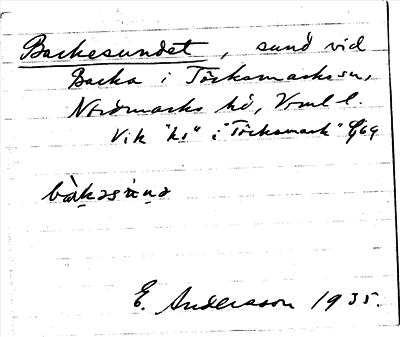 Backesundet, sund vid
Backa i Töcksmarks sn,
Nordmarks hd, Vrml l.
Vik "ks" i "Töcksmark" Ö69
E. Andersson 1935.